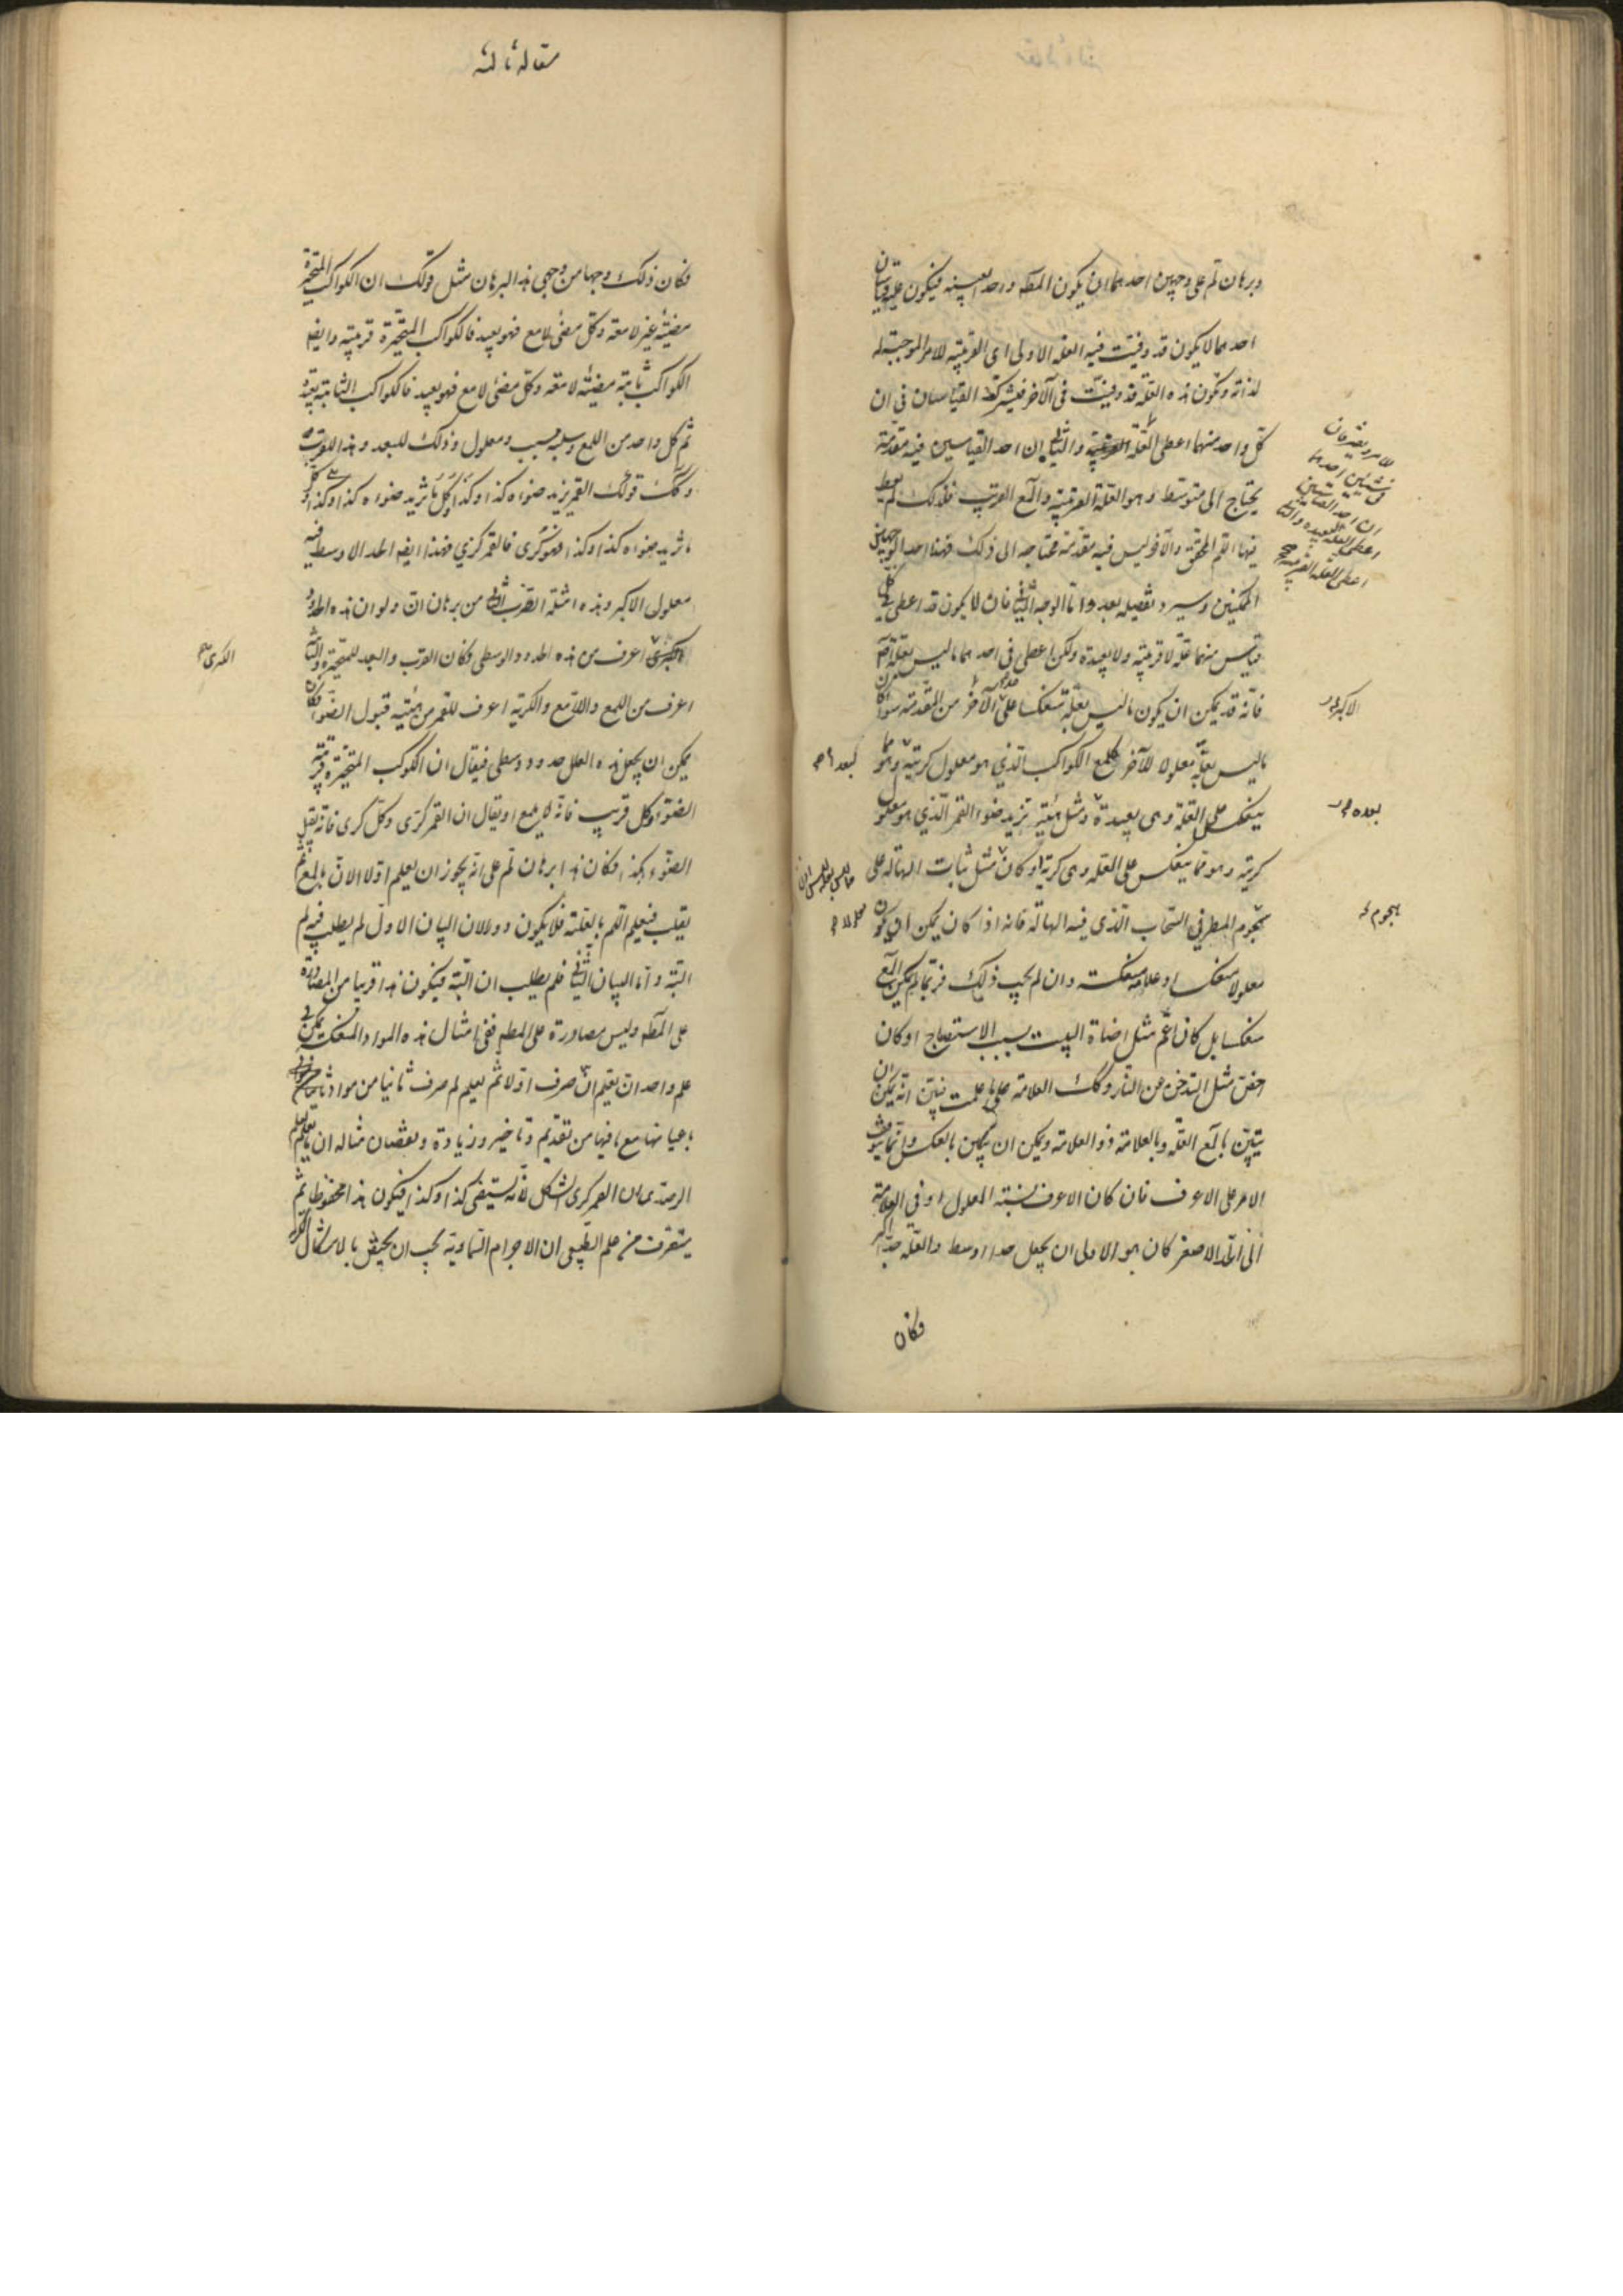 وبرهان لم على وجهين احدهما ان يكون المط واحدا بعينه فيكون عليه قياسان
احدهما لا يكون قد وفيت فيه العلة الاولى اى القريبة للامر الموجبة له
لذاته وتكون هذه العلة قد وفيت فى الآخر فيشترك القياسان فى ان
كل واحد منهما اعطى العلة القريبة والثانى ان احد القياسين فيه مقدمة
يحتاج الى متوسط وهو العلة القريبة والمع القريب فلذلك لم يعط
فيها اللم المحقق والآخر ليس فيه مقدمة محتاجة الى ذلك فهذا احد الوجهين
الممكنين وسيرد تفصيله بعد واما الوجه الثانى فان لا يكون قد اعطى فى كل
قياس منهما علة لا قريبة ولا بعيدة ولكن اعطى فى احدهما ما ليس بعلة
فانه قد يمكن ان يكون ما ليس بعلة منعكسا على الآخر من المقدمة سواء كان
ما ليس بعلة معلولا للآخر كلمع الكواكب الذي هو معلول كريته وهو مما
ينعكس على العلة وهى بعيدة ومثل هيئة تزيد ضوء القمر الذي هو معلول
كريته وهو مما ينعكس على العلة وهى كريته او كان مثل ثبات الهالة على
هجوم المطر فى السحاب الذى فيه الهالة فانه اذا كان يمكن ان يكون
معلولا منعكسا وعلامة منعكسة وان لم يجب ذلك فربما لم يكن المع
منعكسا بل كان اعم مثل اضاة البيت بسبب الاستصباح او كان
اخص مثل التدخن من النار وكك العلامة على ما علمت فبين انه يمكن ان
يتبين بالمع العلة وبالعلامة ذو العلامة ويمكن ان يكون بالعكس وانما يتوقف
الامر على الاعرف فان كان الاعرف نسبته المعلول او ذي العلامة
الى الحد الاصغر كان هو الاولى ان يجعل حدا اوسط والعلة حدا اكبر
فكان
للامر ويفترقان
فى شيئين احدهما
ان احد القياسين
اعطى العلة البعيدة والثانى
اعطى العلة القريبة صح
الاكبر
بعده
هجوم
مقاله ثالثه
فكان ذلك وجها من وجهى هذا البرهان مثل قولك ان الكواكب المتحيرة
مضيئة غير لامعة وكل مضئ لامع فهو بعيد فالكواكب المتحيرة قريبة وايض
الكواكب ثابتة مضيئة لامعة وكل مضئ لامع فهو بعيد فالكواكب الثابتة بعيدة
ثم كل واحد من اللمع وسلبه مسبب ومعلول وذلك للبعد وهذا للقرب
وكك قولك القمر يزيد ضوءه كذا وكذا وكل ما تزيد ضوءه كذا وكذا
ما تزيد ضوءه كذا وكذا فهو كرى فالقمر كري فهذا ايض الحد الاوسط فيه
معلول الاكبر وهذه امثلة الضرب الاول من برهان ان ولو ان هذه الحدود
الكبرى اعرف من هذه الحدود الوسطى وكان القرب والبعد للمتحيرة والثابتة
اعرف من اللمع واللامع والكرية اعرف للقمر من هيئة قبول الضوء فكان
يمكن ان يجعل هذه العلل حدود وسطى فيقال ان الكوكب المتحيرة قريبة
الضوء وكل قريب فانه لا يلمع او يقال ان القمر كرى وكل كرى فانه يقبل
الضوء هكذا فكان هذا برهان لم على انه يجوز ان يعلم اولا الان بالمع ثم
يقلب فيعلم اللم بالعلة فلا يكون دورا لان البيان الاول لم يطلب فيه لم
البتة واما البيان الثانى فلم يطلب ان البتة فيكون هذا قريبا من المصادرة
على المط وليس مصادرة على المط ففى امثال هذه المواد المنعكسة يمكن فى
علم واحد ان يقيم ان صرف اولا ثم يعلم لم صرف ثانيا من مواد
باعيانها مع ما فيها من تقديم وتاخير وزيادة ونقصان مثاله ان يعلم بالتعليم
الرصدى ان القمر كرى الشكل لانه يستضئ كذا وكذا فيكون هذا محفوظا ثم
يتعرف من علم الطبيعى ان الاجرام السماوية يجب ان يختص بالاشكال الكرية
الكبرى